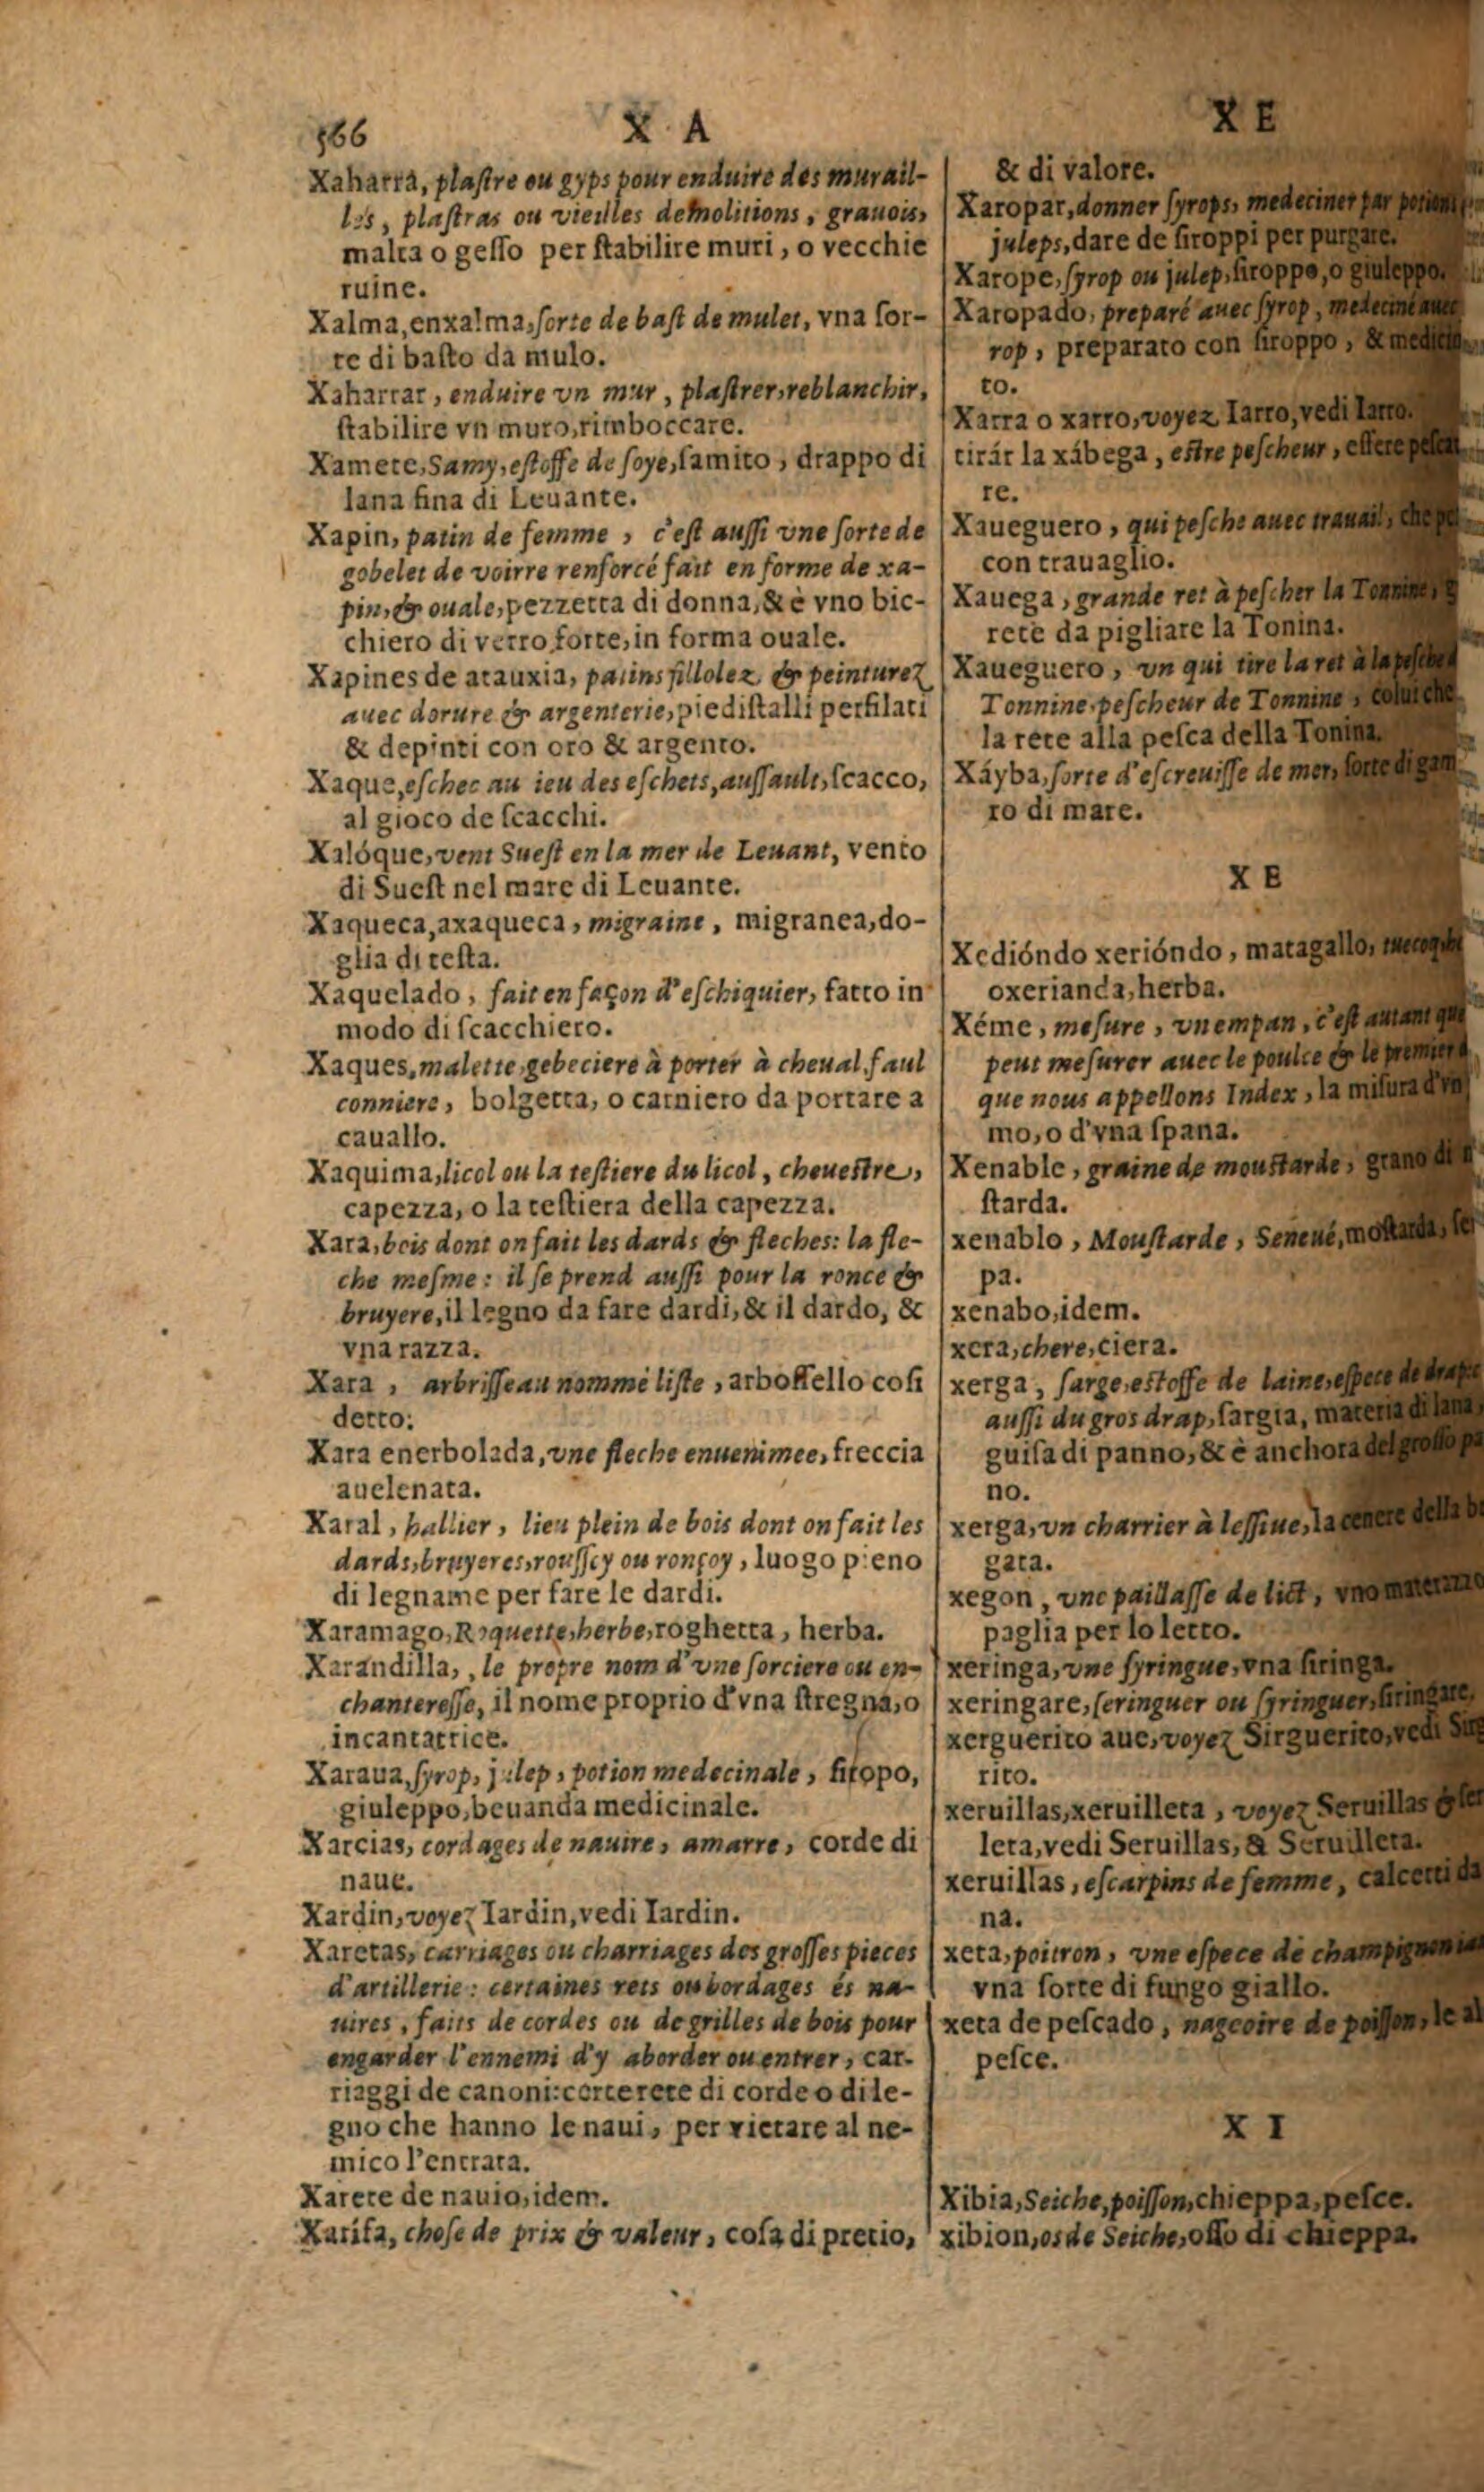 566 X A
Xaharra, plaſtre ou gyps pour enduire des murail-
les, plaſtras ou vieilles demolitions, grauois,
malta o geſſo per ſtabilire muri, o vecchie
ruine.
Xalma, enxalma, ſorte de baſt de mulet, vna ſor-
te di baſto da mulo.
Xaharrar, enduire vn mur, plaſtrer, reblanchir,
ſtabilire vn muro, rimboccare.
Xamete, Samy, eſtoffe de ſoye, ſamito, drappo di
lana fina di Leuante.
Xapin, patin de femme, c'eſt auſſi vne ſorte de
gobelet de voirre renforcé fait en forme de xa-
pin, & ouale, pezzetta di donna, & è vno bic-
chiero di verro forte, in forma ouale.
Xapines de atauxia, patins fillolez & peinturez
auec dorure & argenterie, piediſtalli perfilati
& depinti con oro & argento.
Xaque, eſchec au ieu des eſchets, auſſault, ſcacco,
al gioco de ſcacchi.
Xalóque, vent Sueſt en la mer de Leuant, vento
di Sueſt nel mare di Leuante.
Xaqueca, axaqueca, migraine, migranea, do-
glia di teſta.
Xaquelado, fait en façon d'eſchiquier, fatto in
modo di ſcacchiero.
Xaques, malette, gebeciere à porter à cheual, faul
conniere, bolgetta, o carniero da portare a
cauallo.
Xaquima, licol ou la teſtiere du licol, cheueſtre,
capezza, o la teſtiera della capezza.
Xara, bois dont on fait les dards & fleches: la fle-
che meſme: il ſe prend auſſi pour la ronce &
bruyere, il legno da fare dardi, & il dardo, &
vna razza.
Xara, arbriſſeau nommé liſte, arboſſello coſi
detto:
Xara enerbolada, vne fleche enuenimee, freccia
auelenata.
Xaral, hallier, lieu plein de bois dont on fait les
dards, bruyeres, rouſſoy ou ronçoy, luogo pieno
di legname per fare le dardi.
Xaramago, Roquette, herbe, roghetta, herba.
Xarandilla, , le propre nom d'vne ſorciere ou en-
chantereſſe, il nome proprio d'vna ſtregna, o
incantatrice.
Xaraua, ſyrop, julep, potion medecinale, ſiropo,
giuleppo, beuanda medicinale.
Xarcias, cordages de nauire, amarre, corde di
naue.
Xardin, voyez Iardin, vedi Iardin.
Xaretas, carriages ou charriages des groſſes pieces
d'artillerie: certaines rets ou bordages és na-
uires, faits de cordes ou de grilles de bois pour
engarder l'ennemi d'y aborder ou entrer, car-
riaggi de canoni: certe rete di corde o di le-
gno che hanno le naui, per vietare al ne-
mico l'entrata.
Xarete de nauio, idem.
Xarifa, choſe de prix & valeur, coſa di pretio,
X E
& di valore.
Xaropar, donner ſyrops, medeciner par potions
juleps, dare de ſiroppi per purgare.
Xarope, ſyrop ou julep, ſiroppo, o giuleppo.
Xaropado, preparé auec ſyrop, medeciné auec
rop, preparato con ſiroppo, &
to.
Xarra o xarro, voyez Iarro, vedi Iarro.
tirár la xábega, eſtre peſcheur, eſſere peſcat
re.
Xaueguero, qui peſche auec trauail, che
con trauaglio.
Xauega, grande ret à peſcher la Tonnine,
rete da pigliare la Tonina.
Xaueguero, vn qui tire la ret à la peſche
Tonnine, peſcheur de Tonnine, colui che
la rete alla peſca della Tonina.
Xáyba, ſorte d'eſcreuiſſe de mer, ſorte di gam
ro di mare.
X E
Xedióndo xerióndo, matagallo,
oxerianda, herba.
Xéme, meſure, vn empan, c'eſt autant que
peut meſurer auec le poulce & le premier
que nous appellons Index, la miſura d'vn
mo, o d'vna ſpana.
Xenable, graine de mouſtarde, grano di
ſtarda.
xenablo, Mouſtarde, Seneué, moſtarda,
pa.
xenabo, idem.
xera, chere, ciera.
xerga, ſarge, eſtoffe de laine, eſpece de
auſſi du gros drap, ſargia, materia di lana,
guiſa di panno, & è anchora del groſſo pa
no.
xerga, vn charrier à leſſiue, la cenere della
gata.
xegon, vne paillaſſe de lict, vno
paglia per lo letto.
xeringa, vne ſyringue, vna ſiringa.
xeringare, ſeringuer ou ſyringuer, ſiringare,
xerguerito aue, voyez Sirguerito, vedi Sirg
rito.
xeruillas, xeruilleta, voyez Seruillas & ſer
leta, vedi Seruillas, & Seruilleta.
xeruillas, eſcarpins de femme, calcetti da
na.
xeta, poitron, vne eſpece de champignon
vna ſorte di fungo giallo.
xeta de peſcado, nageoire de poiſſon, le al
peſce.
X I
Xibia, Seiche, poiſſon, chieppa, peſce.
xibion, os de Seiche, oſſo di chieppa.